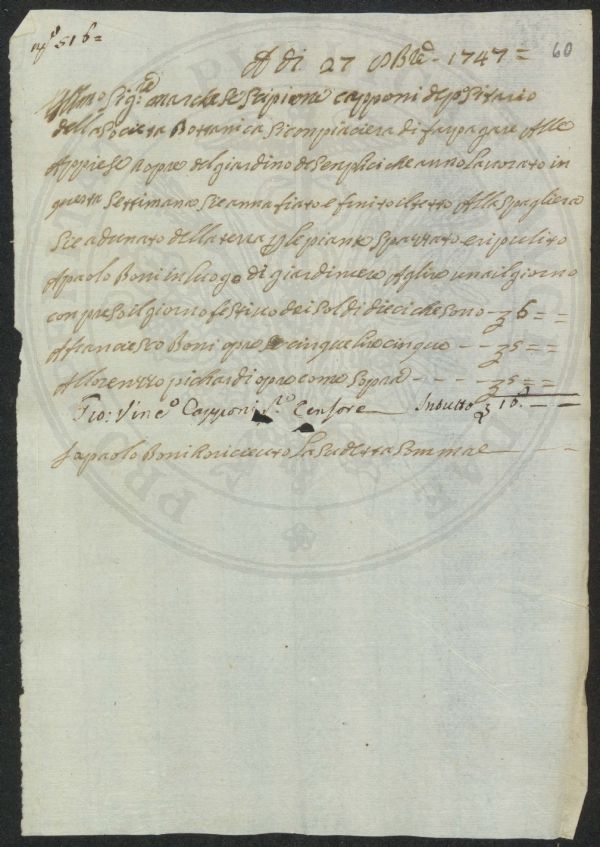 nº 516=
60
A di 27 8Bre 1747=
Illmo Sig:re marchese Scipione capponi depositario
della Società Bottanica Si conpiacera di far pagare Alle
Apprese opre del giardino de Senplici che anno lavorato in
questa Settimana Sie anna fiato e finito il tetto Alla Spagliera
Sie adunato della terra le piante Spazzato e ripulito
A paolo Boni in luogo di giardiniere A lire una il giorno
conpreso il giorno festivo dei Soldi dieci che sono - 6 = =
A francesco Boni opre cinque lire cinque - - - 5 = =
A llorenzzo pichardi opre come Sopra - - - - 5 = =
Gio: Vinc:o Capponi Censore In tutto 16. - -
Io paolo Boni ho riceuto la Sudetta Somma